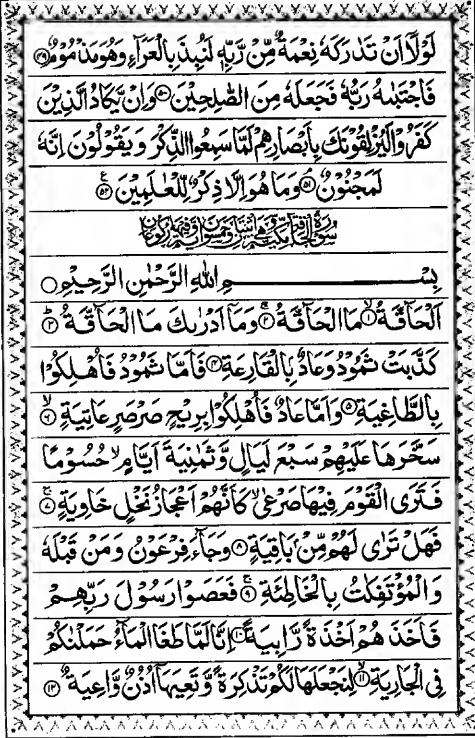 لَوْلَاۤ اَنْ تَدٰرَكَهٗ نِعْمَةٌ مِّنْ رَّبِّهٖ لَنُبِذَ بِالْعَرَآءِ وَهُوَ مَذْمُوْمٌ ﴿۴۹﴾
فَاجْتَبٰىهُ رَبُّهٗ فَجَعَلَهٗ مِنَ الصّٰلِحِيْنَ ﴿۵۰﴾ وَاِنْ يَّكَادُ الَّذِيْنَ
كَفَرُوْا لَيُزْلِقُوْنَكَ بِاَبْصَارِهِمْ لَمَّا سَمِعُوا الذِّكْرَ وَيَقُوْلُوْنَ اِنَّهٗ
لَمَجْنُوْنٌ ﴿۵۱﴾ وَمَا هُوَ اِلَّا ذِكْرٌ لِّلْعٰلَمِيْنَ ﴿۵۲﴾
بِسْمِ اللّٰهِ الرَّحْمٰنِ الرَّحِيْمِ
اَلْحَآقَّةُ ﴿۱﴾ مَا الْحَآقَّةُ ﴿۲﴾ وَمَاۤ اَدْرٰىكَ مَا الْحَآقَّةُ ﴿۳﴾
كَذَّبَتْ ثَمُوْدُ وَعَادٌۢ بِالْقَارِعَةِ ﴿۴﴾ فَاَمَّا ثَمُوْدُ فَاُهْلِكُوْا
بِالطَّاغِيَةِ ﴿۵﴾ وَاَمَّا عَادٌ فَاُهْلِكُوْا بِرِيْحٍ صَرْصَرٍ عَاتِيَةٍ ﴿۶﴾
سَخَّرَهَا عَلَيْهِمْ سَبْعَ لَيَالٍ وَّثَمٰنِيَةَ اَيَّامٍ حُسُوْمًا
فَتَرَى الْقَوْمَ فِيْهَا صَرْعٰى كَاَنَّهُمْ اَعْجَازُ نَخْلٍ خَاوِيَةٍ ﴿۷﴾
فَهَلْ تَرٰى لَهُمْ مِّنْۢ بَاقِيَةٍ ﴿۸﴾ وَجَآءَ فِرْعَوْنُ وَمَنْ قَبْلَهٗ
وَالْمُؤْتَفِكٰتُ بِالْخَاطِئَةِ ﴿۹﴾ فَعَصَوْا رَسُوْلَ رَبِّهِمْ
فَاَخَذَهُمْ اَخْذَةً رَّابِيَةً ﴿۱۰﴾ اِنَّا لَمَّا طَغَا الْمَآءُ حَمَلْنٰكُمْ
فِى الْجَارِيَةِ ﴿۱۱﴾ لِنَجْعَلَهَا لَكُمْ تَذْكِرَةً وَّتَعِيَهَاۤ اُذُنٌ وَّاعِيَةٌ ﴿۱۲﴾